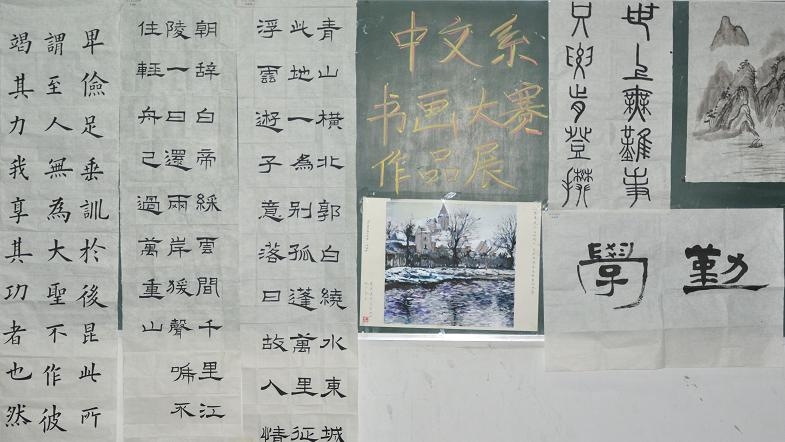 卑儉足垂訓於後昆此所
謂至人無為大聖不作彼
竭其力我享其功者也然
朝辞白帝綵雲間千里江
陵一日還兩岸猨聲啼不
住輕舟已過萬重山
青山橫北郭白繞水東城
此地一為别孤蓬萬里征
浮雲遊子意落日故人情
中文系
书画大赛
作品展
世上無難事
只要肯登攀
勤學